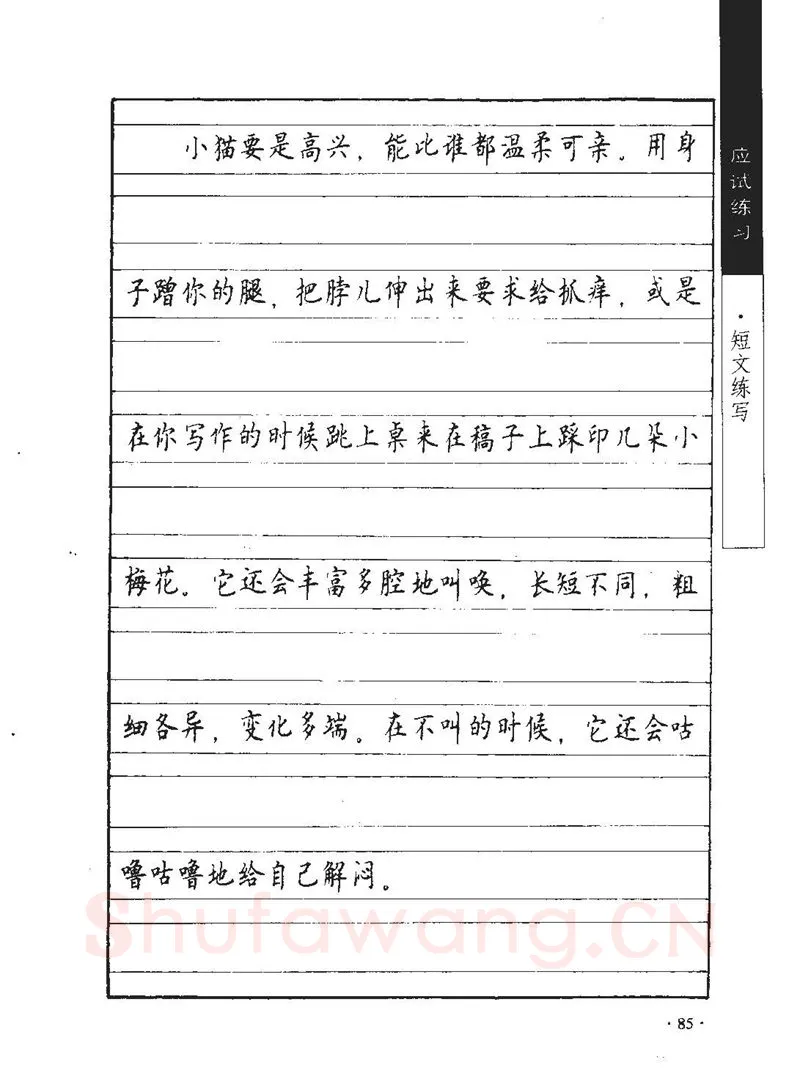 小猫要是高兴，能比谁都温柔可亲。用身
子蹭你的腿，把脖儿伸出来要求给抓痒，或是
在你写作的时候跳上桌来在稿子上踩印几朵小
梅花。它还会丰富多腔地叫唤，长短不同，粗
细各异，变化多端。在不叫的时候，它还会咕
噜咕噜地给自己解闷。
应试练习
·短文练写
Shufawang.CN
·85·